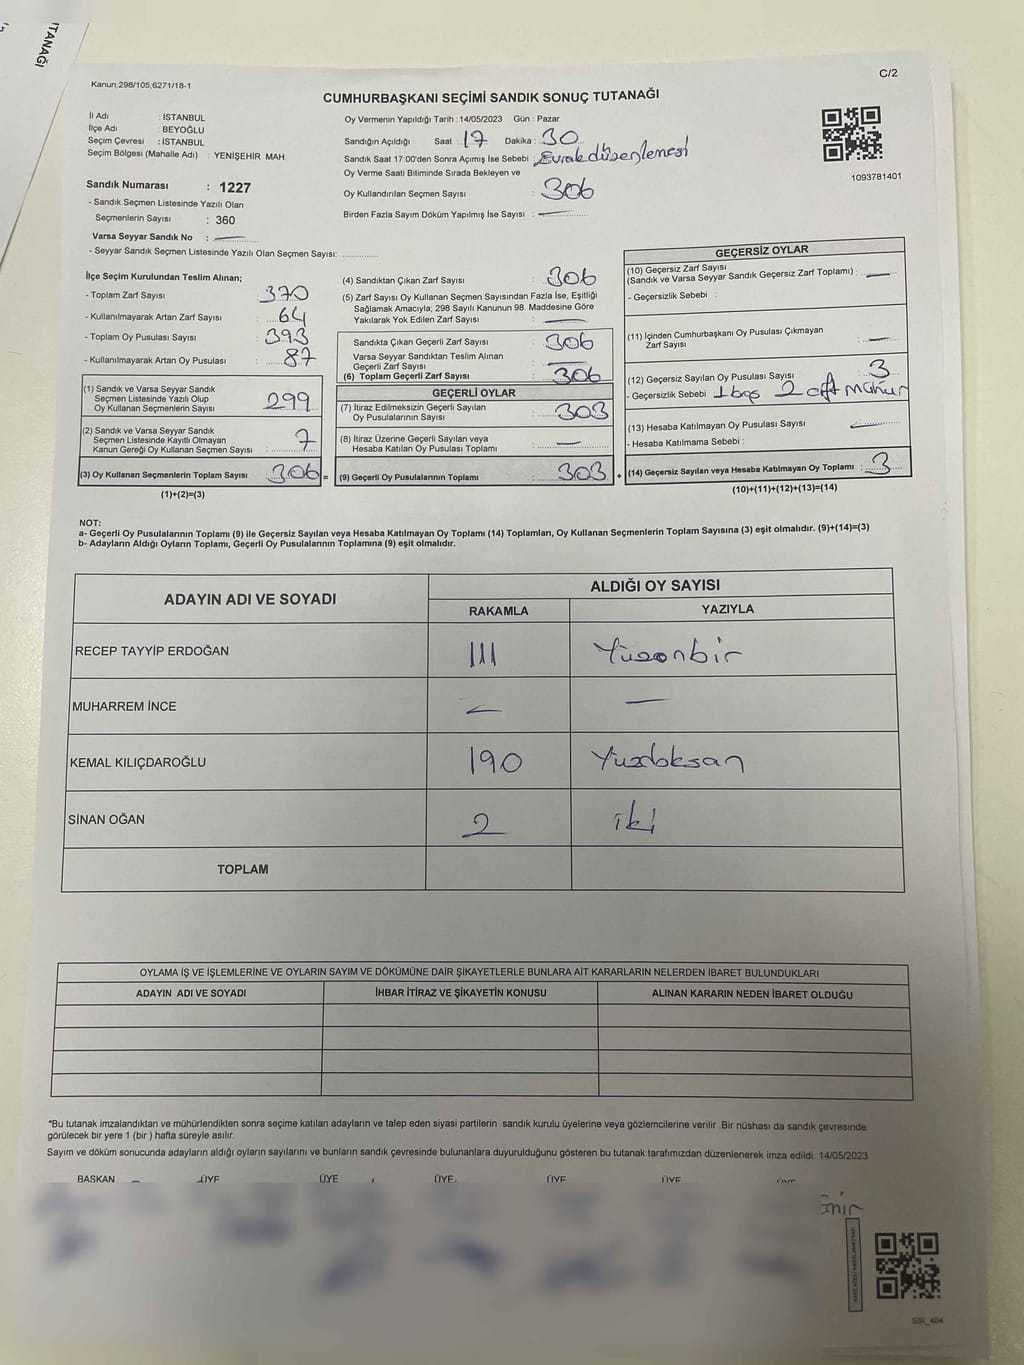 UTANAĞI
C/2
Kanun:298/105,6271/18-1
CUMHURBAŞKANI SEÇİMİ SANDIK SONUÇ TUTANAĞI
İl Adı : İSTANBUL
İlçe Adı : BEYOĞLU
Seçim Çevresi : İSTANBUL
Seçim Bölgesi (Mahalle Adı) : YENİŞEHİR MAH.
Sandık Numarası : 1227
- Sandık Seçmen Listesinde Yazılı Olan
Seçmenlerin Sayısı : 360
Varsa Seyyar Sandık No : —
- Seyyar Sandık Seçmen Listesinde Yazılı Olan Seçmen Sayısı: ..............
Oy Vermenin Yapıldığı Tarih : 14/05/2023 Gün : Pazar
Sandığın Açıldığı Saat 17 Dakika : 30
Sandık Saat 17:00'den Sonra Açımış İse Sebebi : Evrak düzenlemesi
Oy Verme Saati Bitiminde Sırada Bekleyen ve
Oy Kullandırılan Seçmen Sayısı : 306
Birden Fazla Sayım Döküm Yapılmış İse Sayısı : —
1093781401
İlçe Seçim Kurulundan Teslim Alınan;
- Toplam Zarf Sayısı : 370
- Kullanılmayarak Artan Zarf Sayısı : 64
- Toplam Oy Pusulası Sayısı : 393
- Kullanılmayarak Artan Oy Pusulası : 87
(1) Sandık ve Varsa Seyyar Sandık
Seçmen Listesinde Yazılı Olup
Oy Kullanan Seçmenlerin Sayısı : 299
(2) Sandık ve Varsa Seyyar Sandık
Seçmen Listesinde Kayıtlı Olmayan
Kanun Gereği Oy Kullanan Seçmen Sayısı : 7
(3) Oy Kullanan Seçmenlerin Toplam Sayısı : 306 =
(1)+(2)=(3)
(4) Sandıktan Çıkan Zarf Sayısı : 306
(5) Zarf Sayısı Oy Kullanan Seçmen Sayısından Fazla İse, Eşitliği
Sağlamak Amacıyla; 298 Sayılı Kanunun 98. Maddesine Göre
Yakılarak Yok Edilen Zarf Sayısı : —
Sandıkta Çıkan Geçerli Zarf Sayısı : 306
Varsa Seyyar Sandıktan Teslim Alınan
Geçerli Zarf Sayısı : —
(6) Toplam Geçerli Zarf Sayısı : 306
GEÇERLİ OYLAR
(7) İtiraz Edilmeksizin Geçerli Sayılan
Oy Pusulalarının Sayısı : 303
(8) İtiraz Üzerine Geçerli Sayılan veya
Hesaba Katılan Oy Pusulası Toplamı : —
(9) Geçerli Oy Pusulalarının Toplamı : 303 +
GEÇERSİZ OYLAR
(10) Geçersiz Zarf Sayısı
(Sandık ve Varsa Seyyar Sandık Geçersiz Zarf Toplamı) : —
- Geçersizlik Sebebi :
(11) İçinden Cumhurbaşkanı Oy Pusulası Çıkmayan
Zarf Sayısı : —
(12) Geçersiz Sayılan Oy Pusulası Sayısı : 3
- Geçersizlik Sebebi : 1 boş 2 çift mühür
(13) Hesaba Katılmayan Oy Pusulası Sayısı : —
- Hesaba Katılmama Sebebi :
(14) Geçersiz Sayılan veya Hesaba Katılmayan Oy Toplamı : 3
(10)+(11)+(12)+(13)=(14)
NOT:
a- Geçerli Oy Pusulalarının Toplamı (9) ile Geçersiz Sayılan veya Hesaba Katılmayan Oy Toplamı (14) Toplamları, Oy Kullanan Seçmenlerin Toplam Sayısına (3) eşit olmalıdır. (9)+(14)=(3)
b- Adayların Aldığı Oyların Toplamı, Geçerli Oy Pusulalarının Toplamına (9) eşit olmalıdır.
ADAYIN ADI VE SOYADI
ALDIĞI OY SAYISI
RAKAMLA YAZIYLA
RECEP TAYYİP ERDOĞAN 111 Yüzonbir
MUHARREM İNCE — —
KEMAL KILIÇDAROĞLU 190 Yüzdoksan
SİNAN OĞAN 2 iki
TOPLAM
OYLAMA İŞ VE İŞLEMLERİNE VE OYLARIN SAYIM VE DÖKÜMÜNE DAİR ŞİKAYETLERLE BUNLARA AİT KARARLARIN NELERDEN İBARET BULUNDUKLARI
ADAYIN ADI VE SOYADI İHBAR İTİRAZ VE ŞİKAYETİN KONUSU ALINAN KARARIN NEDEN İBARET OLDUĞU
*Bu tutanak imzalandıktan ve mühürlendikten sonra seçime katılan adayların ve talep eden siyasi partilerin sandık kurulu üyelerine veya gözlemcilerine verilir .Bir nüshası da sandık çevresinde
görülecek bir yere 1 (bir ) hafta süreyle asılır.
Sayım ve döküm sonucunda adayların aldığı oyların sayılarını ve bunların sandık çevresinde bulunanlara duyurulduğunu gösteren bu tutanak tarafımızdan düzenlenerek imza edildi. 14/05/2023
BAŞKAN ÜYE ÜYE ÜYE ÜYE ÜYE ÜYE